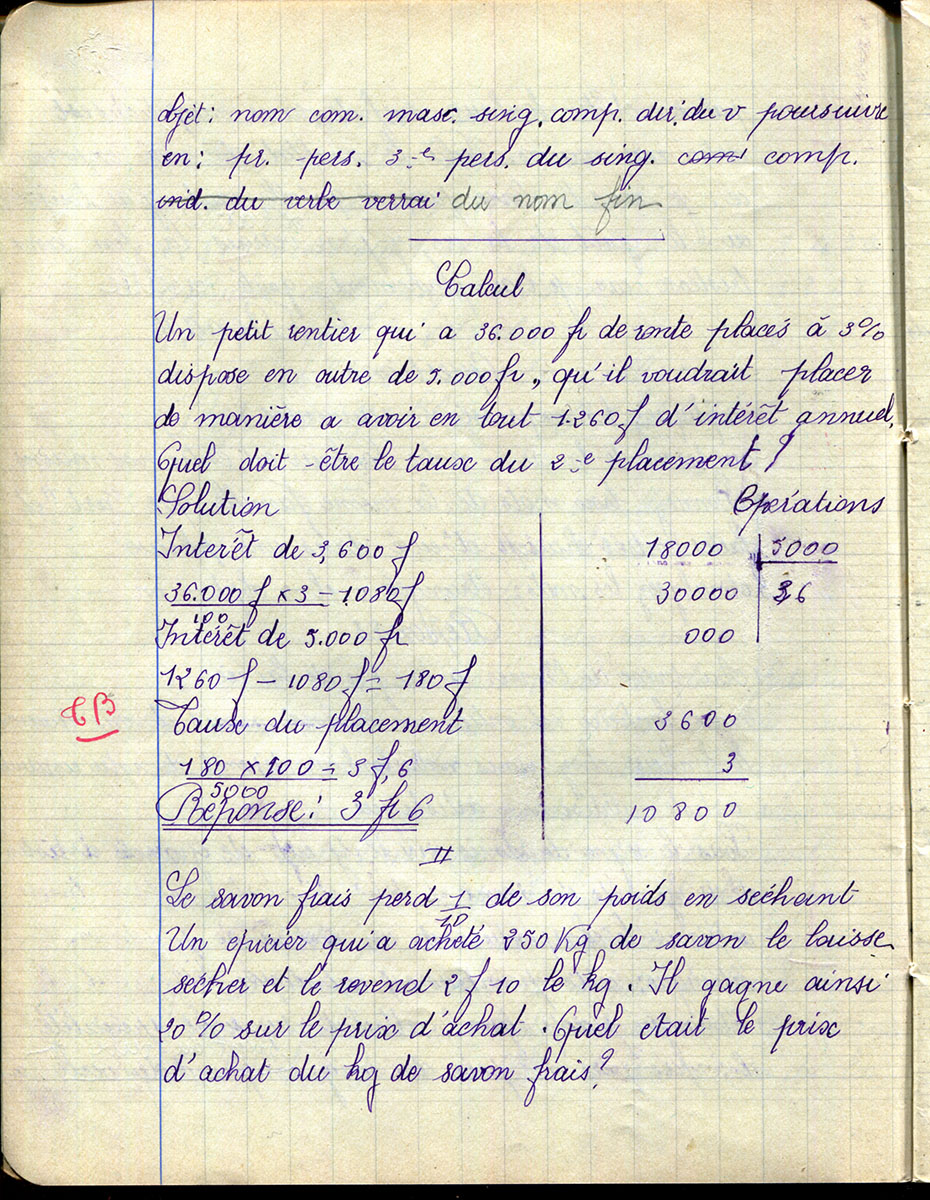 objet : nom com. masc. sing. comp. dir. du v poursuivre
en : pr. pers. 3-e pers. du sing. com comp.
ind. du verbe verrai du nom fin
Calcul
Un petit rentier qui a 36.000 fr de rente placés à 3%
dispose en outre de 5.000 fr, qu'il voudrait placer
de manière a avoir en tout 1.260 f d'intérêt annuel,
Quel doit-être le taux du 2-e placement ?
Solution Opérations
Interêt de 3,600 f 18000 5000
36.000 f x 3 = 1080 f 30000 3,6
100
Intérêt de 5.000 fr 000
1260 f - 1080 f = 180 f
TB Taux du placement 3600
180 x 100 = 3 f, 6 3
5000
Réponse : 3 fr 6 10800
II
Le savon frais perd 1 de son poids en séchant
10
Un epicier qui a acheté 250 Kg de savon le laisse
sécher et le revend 2 f 10 le kg. Il gagne ainsi
20% sur le prix d'achat. Quel etait le prix
d'achat du kg de savon frais ?